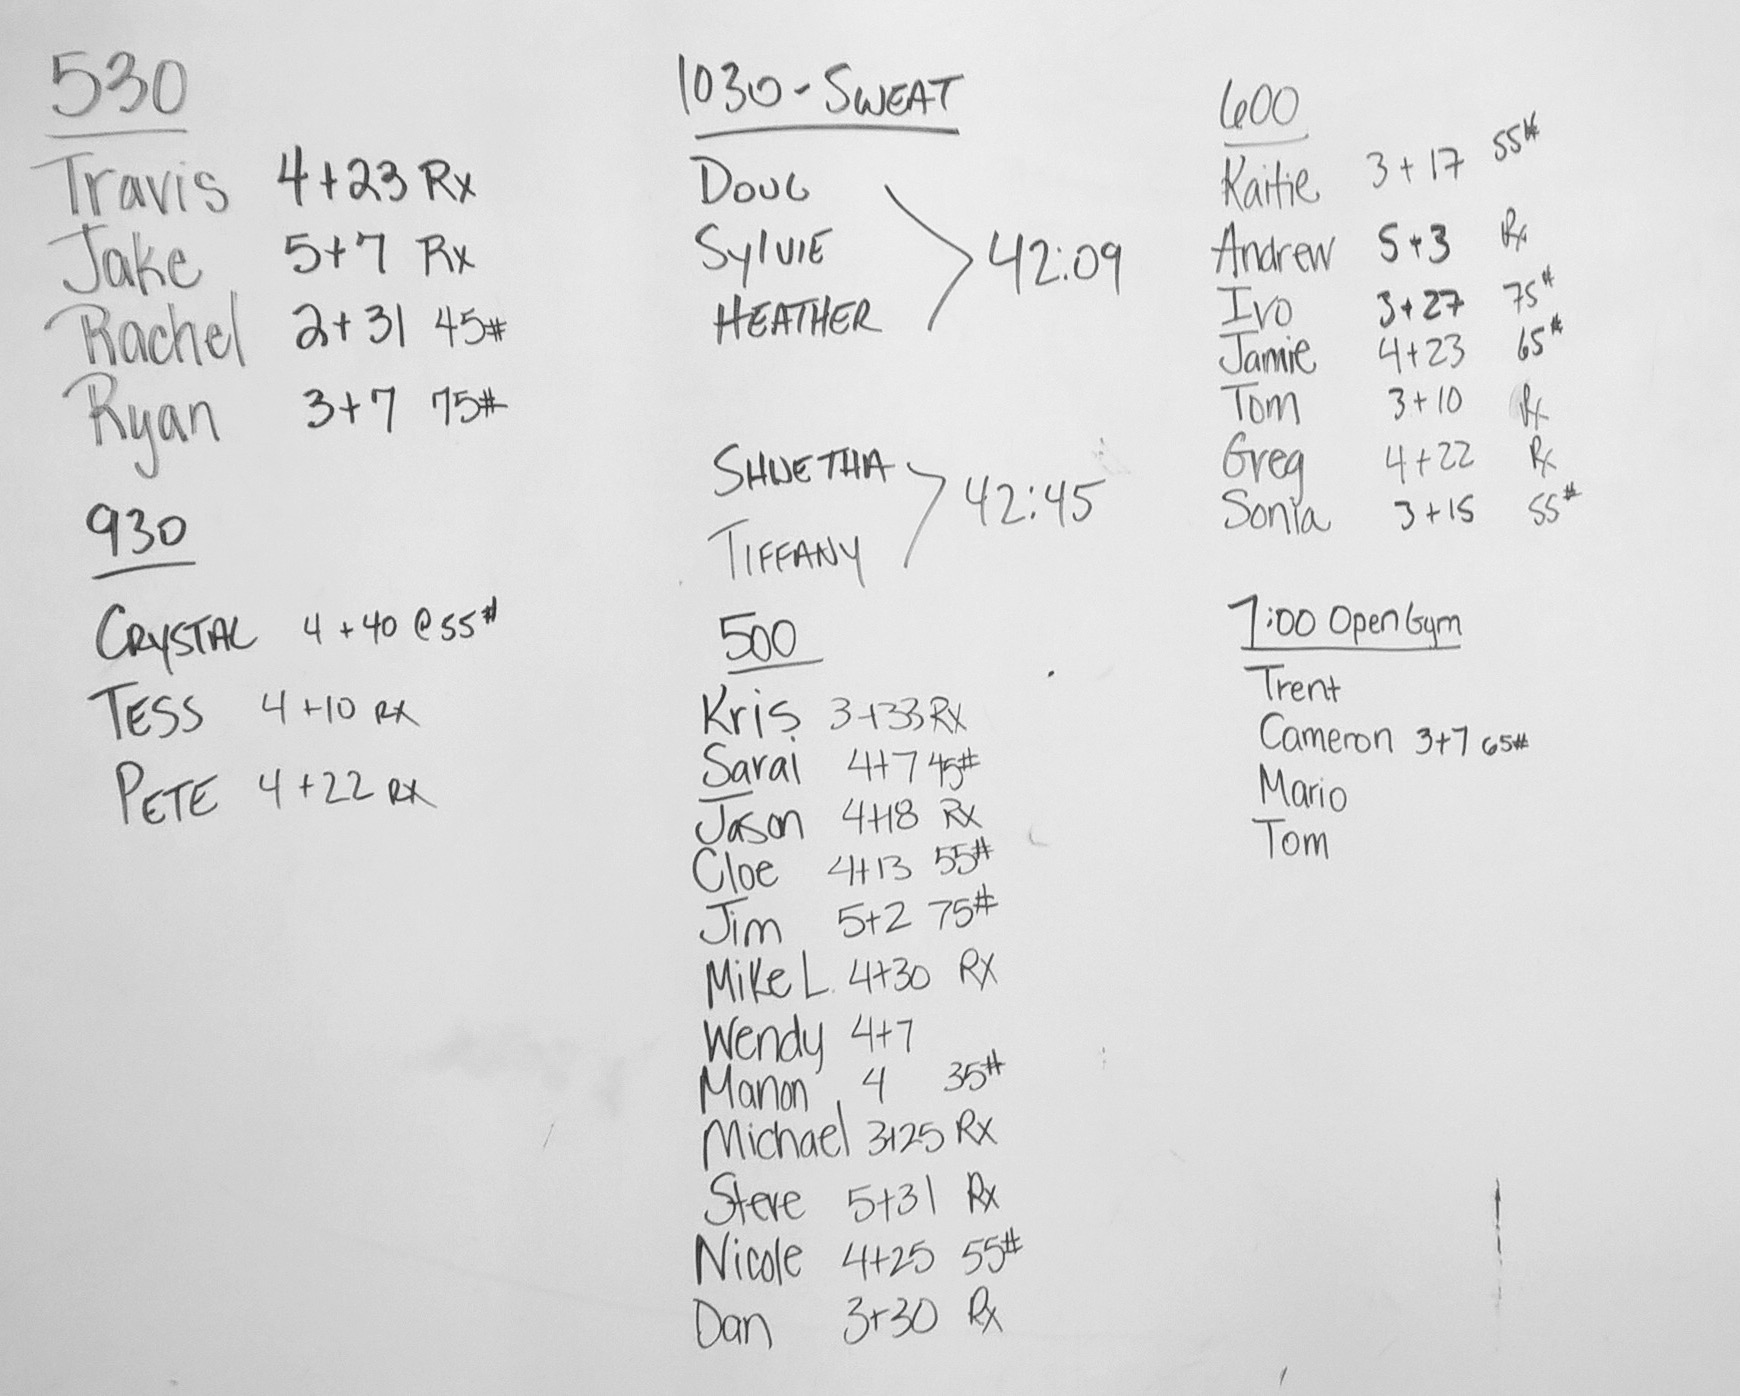 530
Travis 4+23 Rx
Jake 5+7 Rx
Rachel 2+31 45#
Ryan 3+7 75#
930
CRYSTAL 4+40 @55#
TESS 4+10 RX
PETE 4+22 RX
1030-SWEAT
DOUG
SYLVIE
HEATHER
42:09
SHWETHA
TIFFANY
42:45
500
Kris 3+33 Rx
Sarai 4+7 45#
Jason 4+18 Rx
Cloe 4+13 55#
Jim 5+2 75#
Mike L. 4+30 Rx
Wendy 4+7
Manon 4 35#
Michael 3+25 Rx
Steve 5+31 Rx
Nicole 4+25 55#
Dan 3+30 Rx
600
Kaitie 3+17 55#
Andrew 5+3 Rx
Ivo 3+27 75#
Jamie 4+23 65#
Tom 3+10 Rx
Greg 4+22 Rx
Sonia 3+15 55#
7:00 Open Gym
Trent
Cameron 3+7 65#
Mario
Tom